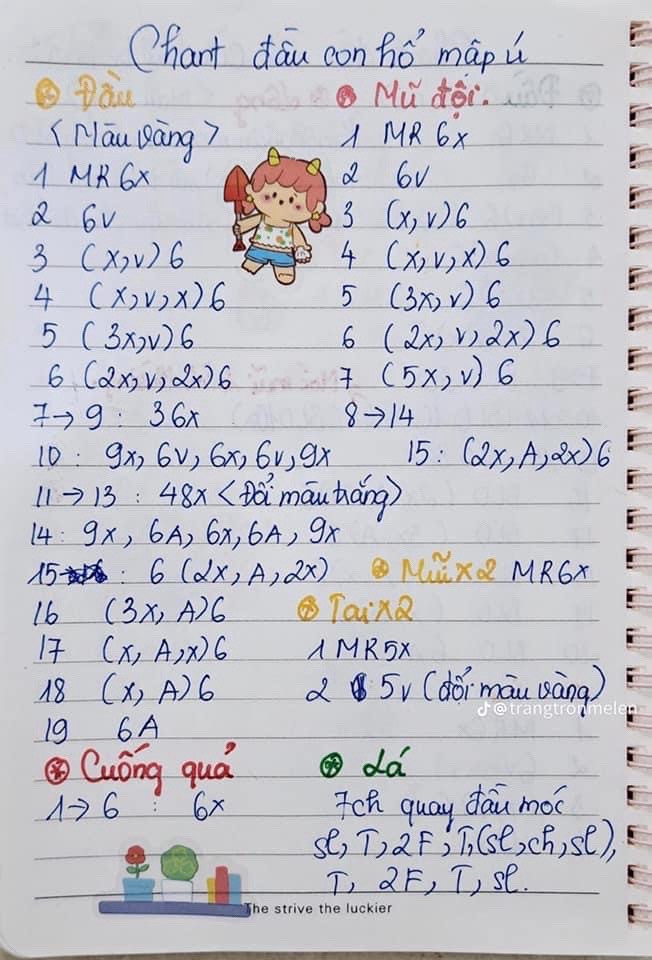 Chart đầu con hổ mập ú
Đầu
<Màu vàng>
1 MR 6x
2 6v
3 (x,v) 6
4 (x,v,x) 6
5 (3x,v) 6
6 (2x,v,2x) 6
7 → 9 : 36x
10 : 9x, 6v, 6x, 6v, 9x
11 → 13 : 48x <Đổi màu trắng>
14 : 9x, 6A, 6x, 6A, 9x
15 : 6 (2x, A, 2x)
16 (3x, A) 6
17 (x, A, x) 6
18 (x, A) 6
19 6A
Cuống quả
1 → 6 : 6x
Mũ đội.
1 MR 6x
2 6v
3 (x, v) 6
4 (x, v, x) 6
5 (3x, v) 6
6 (2x, v, 2x) 6
7 (5x, v) 6
8 → 14
15 : (2x, A, 2x) 6
Mũi x2 MR6x
Tai x2
1 MR5x
2 5v (đổi màu vàng)
@trangtronmelen
Lá
7ch quay đầu móc
sl, T, 2F, T, (sl, ch, sl),
T, 2F, T, sl.
The strive the luckier